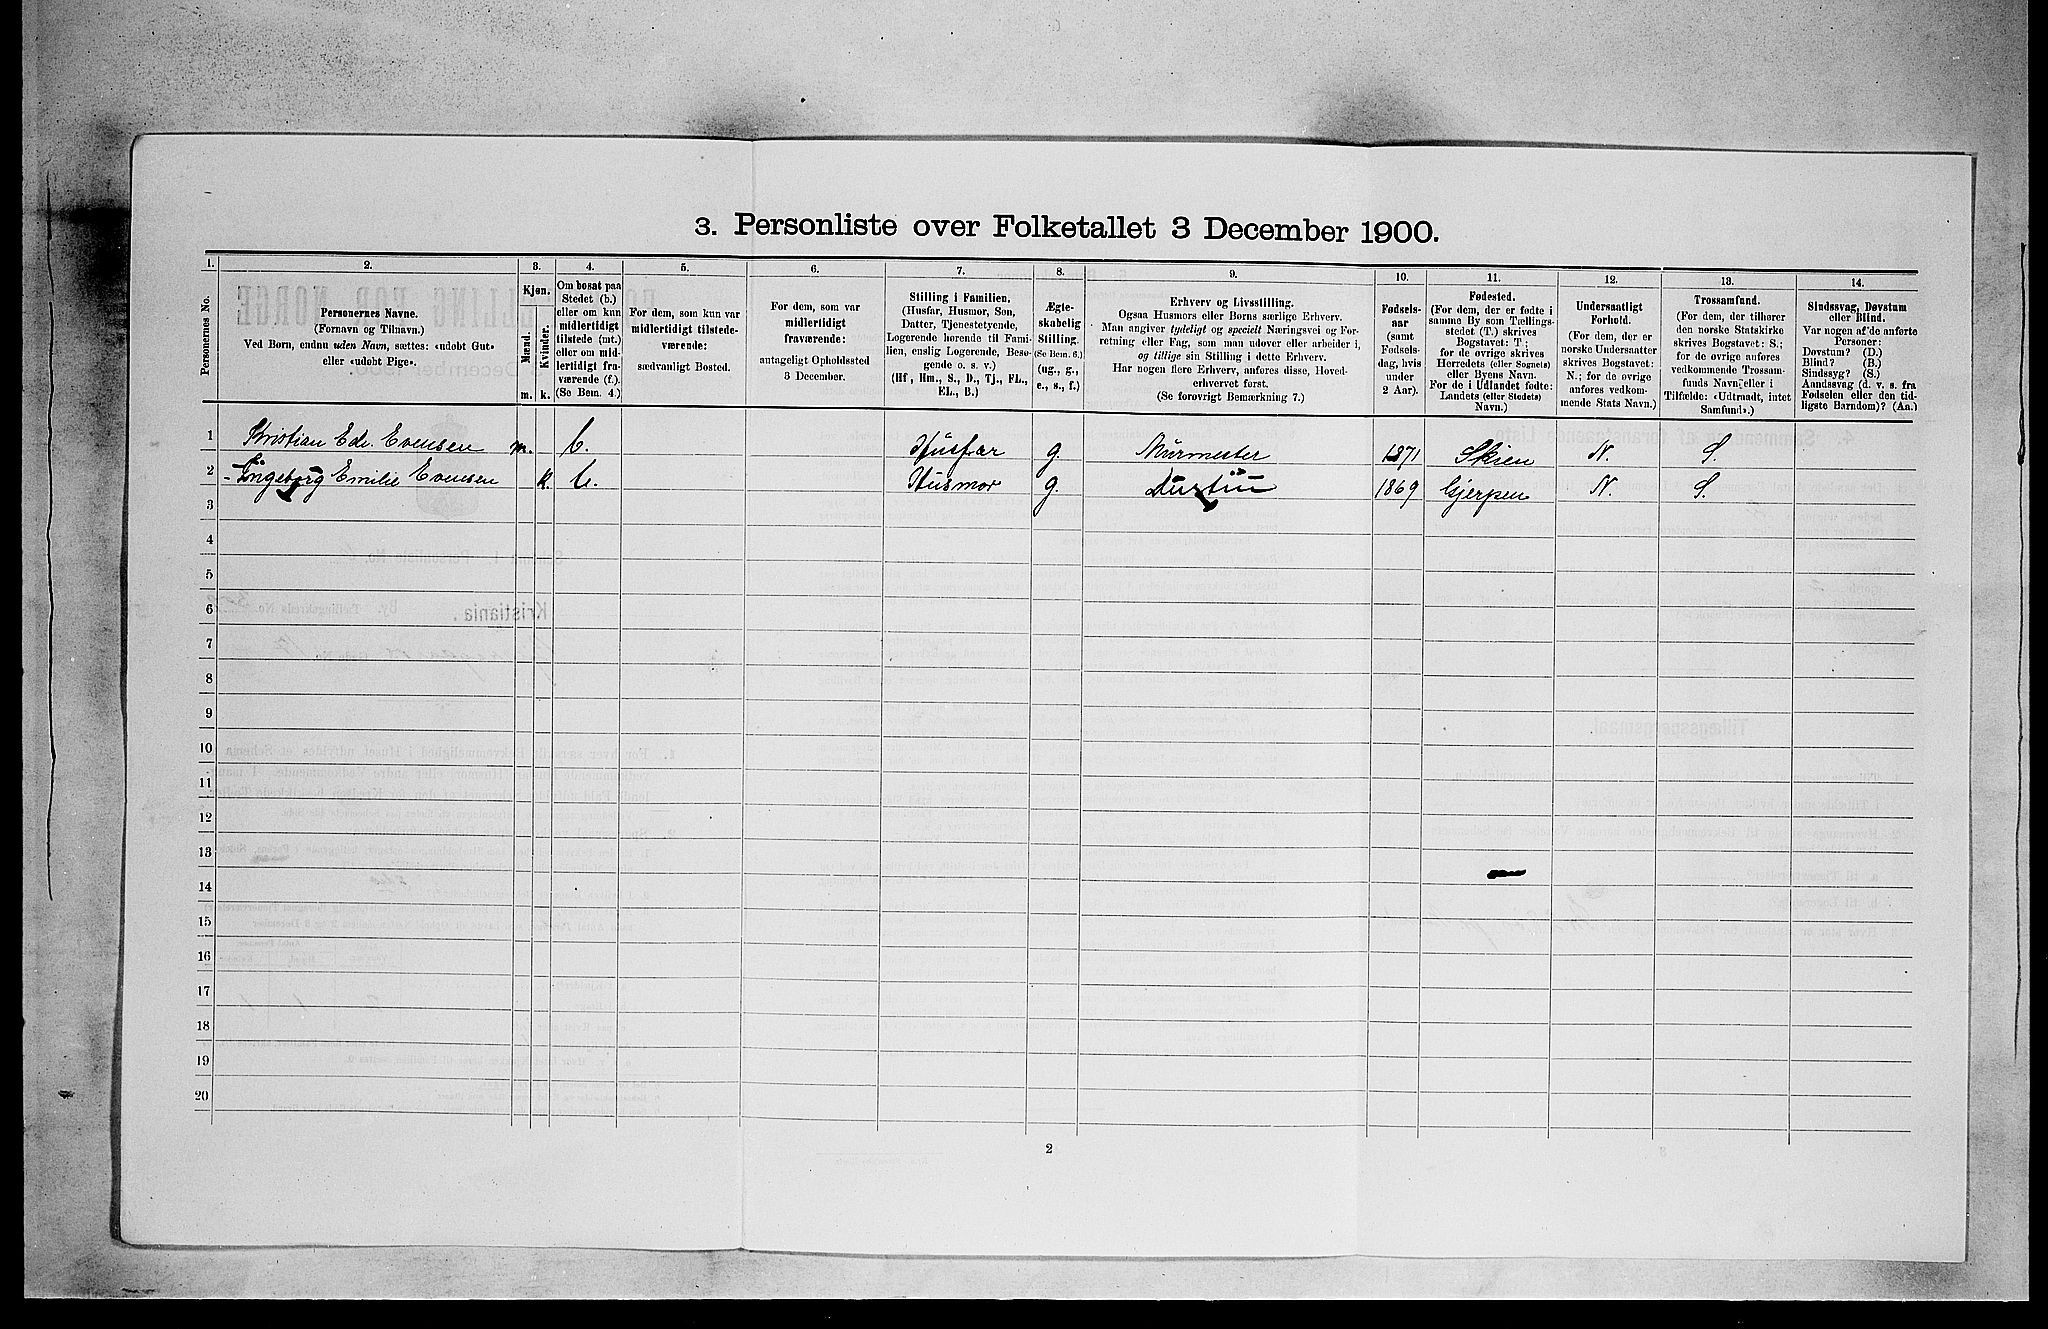 3. Personliste over Folketallet 3 December 1900.
1. 2. 3. 4. 5. 6. 7. 8. 9. 10. 11. 12. 13. 14.
Personernes No.
Personernes Navne.
(Fornavn og Tilnavn.)
Ved Børn, endnu uden Navn, sættes: «udøbt Gut»
eller «udøbt Pige».
Kjøn.
Mænd.
Kvinder.
m. k.
Om bosat paa
Stedet (b.)
eller om kun
midlertidigt
tilstede (mt.)
eller om mid-
lertidigt fra-
værende (f.)
(Se Bem. 4.)
For dem, som kun var
midlertidigt tilstede-
værende:
sædvanligt Bosted.
For dem, som var
midlertidigt
fraværende:
antageligt Opholdssted
3 December.
Stilling i Familien.
(Husfar, Husmor, Søn,
Datter, Tjenestetyende,
Logerende hørende til Fami-
lien, enslig Logerende, Besø-
gende o. s. v.)
(Hf, Hm., S., D., Tj., FL.,
EL., B.)
Ægte-
skabelig
Stilling.
(Se Bem. 6.)
(ug., g.,
e., s., f.)
Erhverv og Livsstilling.
Ogsaa Husmors eller Børns særlige Erhverv.
Man angiver tydeligt og specielt Næringsvei og For-
retning eller Fag, som man udøver eller arbeider i,
og tillige sin Stilling i dette Erhverv.
Har nogen flere Erhverv, anføres disse, Hoved-
erhvervet først.
(Se forøvrigt Bemærkning 7.)
Fødsels-
aar
(samt
Fødsels-
dag, hvis
under
2 Aar).
Fødested.
(For dem, der er fødte i
samme By som Tællings-
stedet (T.) skrives
Bogstavet: T.;
for de øvrige skrives
Herredets (eller Sognets)
eller Byens Navn.
For de i Udlandet fødte:
Landets (eller Stedets)
Navn.)
Undersaatligt
Forhold.
(For dem, der er
norske Undersaatter
skrives Bogstavet:
N.; for de øvrige
anføres vedkom-
mende Stats Navn.)
Trossamfund.
(For dem, der tilhører
den norske Statskirke
skrives Bogstavet: S.;
for de øvrige anføres
vedkommende Trossam-
funds Navn, eller i
Tilfælde: «Udtraadt, intet
Samfund».)
Sindssvag, Døvstum
eller Blind.
Var nogen af de anførte
Personer:
Døvstum? (D.)
Blind? (B.)
Sindssyg? (S.)
Aandssvag (d. v. s. fra
Fødselen eller den tid-
ligste Barndom)? (Aa.)
1 Kristian Edv. Evensen m. b. Husfar g. Murmester 1871 Skien N. S.
2 Ingeborg Emilie Evensen k. b. Husmor g. 1869 Gjerpen N. S.
3
4
5
6
7
8
9
10
11
12
13
14
15
16
17
18
19
20
2